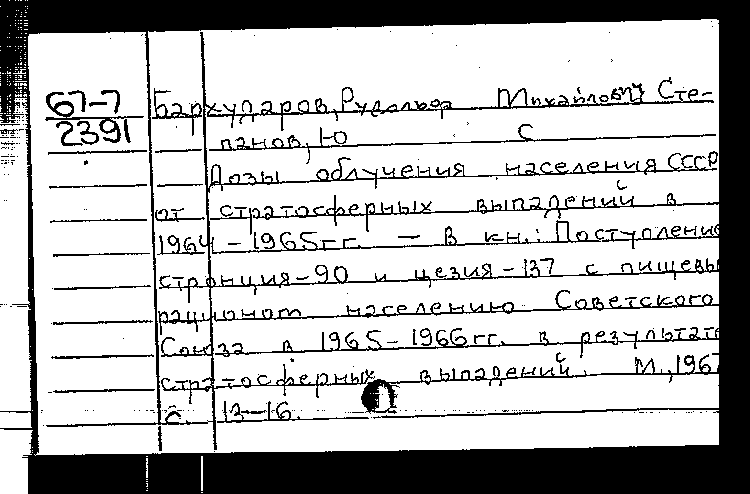 67-7
2391
Бархударов, Рудольф Михайлович Сте-
панов, Ю С
Дозы облучения населения СССР
от стратосферных выпадений в
1964-1965гг. - В кн.: Поступление
стронция-90 и цезия-137 с пищевы
рационом населению Советского
Союза в 1965-1966гг. в результате
стратосферных выпадений. М., 1967
с. 13-16.